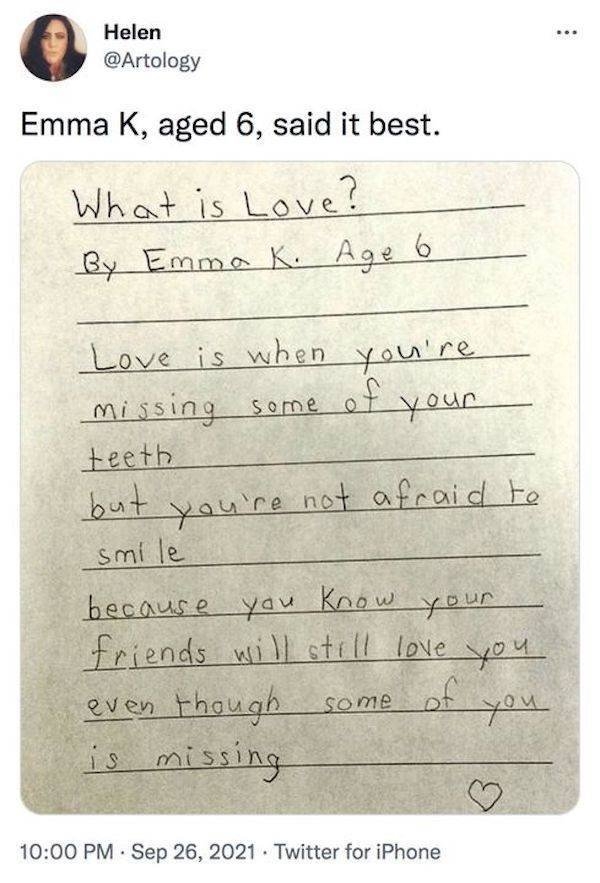 Helen
@Artology
Emma K, aged 6, said it best.
What is Love?
By Emma K. Age 6
Love is when you're
missing some of your
teeth
but you're not afraid to
smile
because you know your
friends will still love you
even though some of you
is missing
10:00 PM · Sep 26, 2021 · Twitter for iPhone